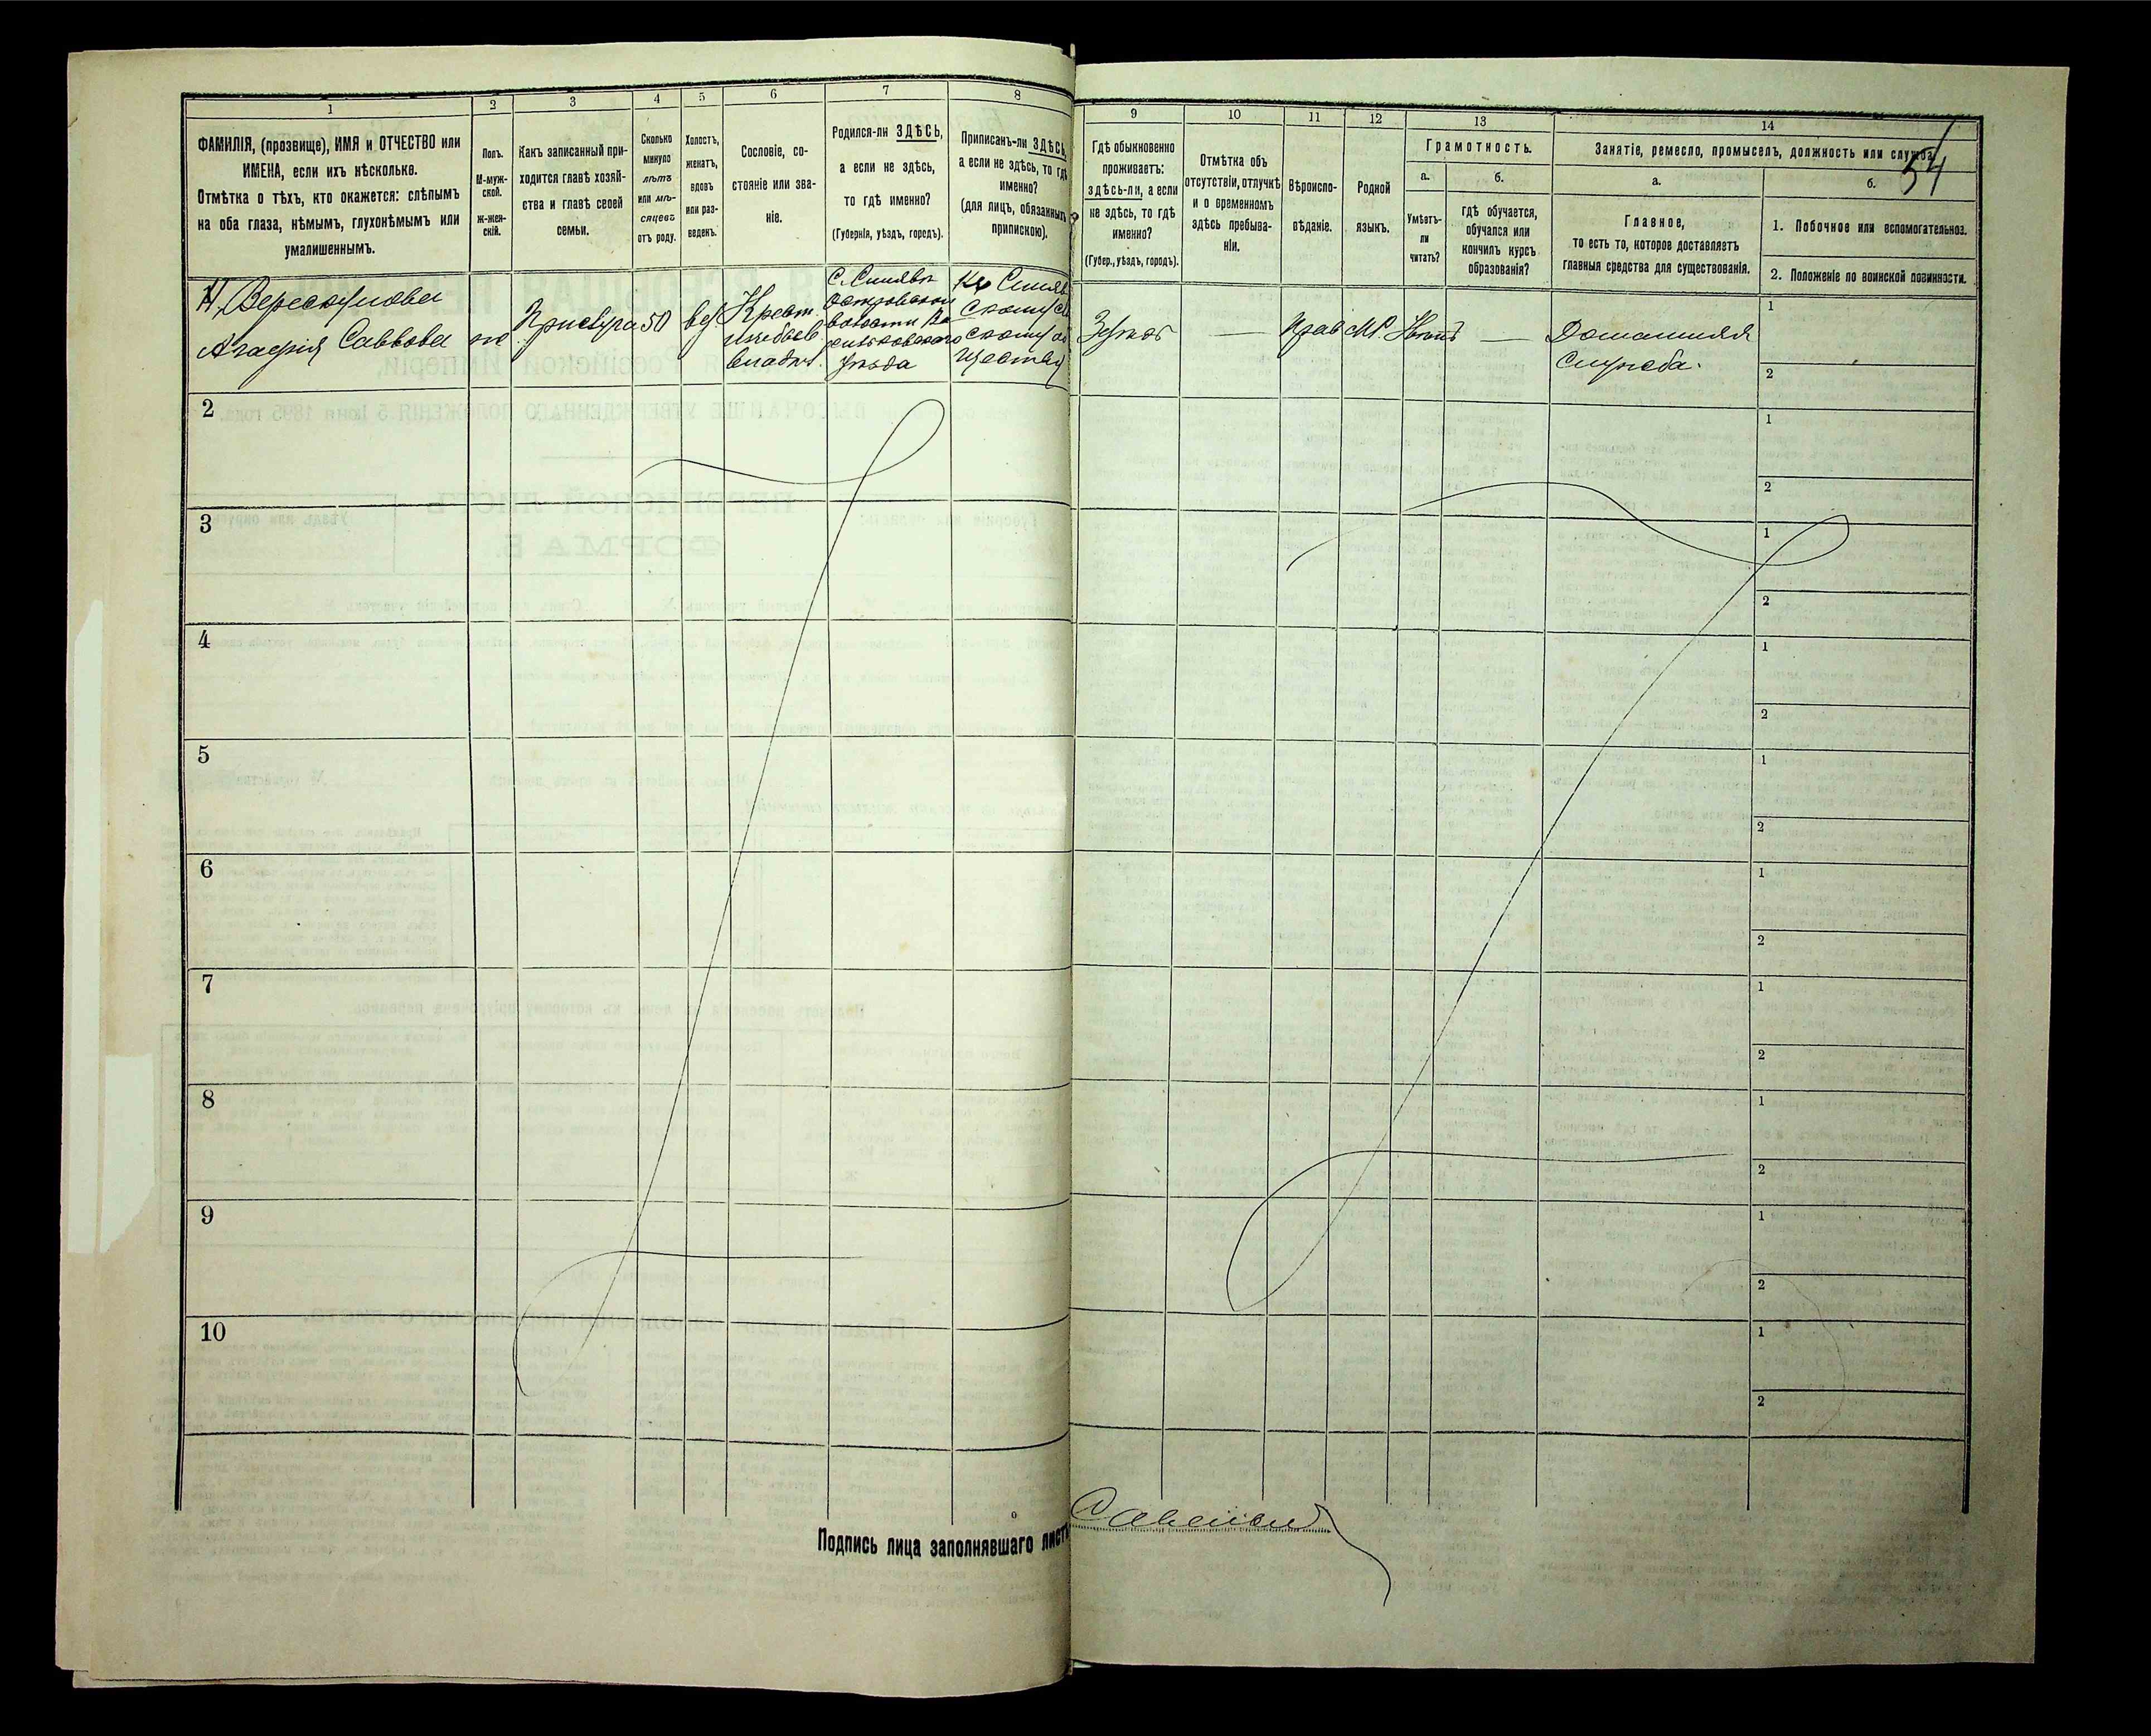 1
2
3
4
5
6
7
8
ФАМИЛІЯ, (прозвище), ИМЯ и ОТЧЕСТВО или
ИМЕНА, если ихъ нѣсколько.
Отмѣтка о тѣхъ, кто окажется: слѣпымъ
на оба глаза, нѣмымъ, глухонѣмымъ или
умалишеннымъ.
Полъ.
М-муж-
ской.
ж-жен-
скій.
Какъ записанный при-
ходится главѣ хозяй-
ства и главѣ своей
семьи.
Сколько
минуло
лѣтъ
или мѣ-
сяцевъ
отъ роду.
Холостъ,
женатъ,
вдовъ
или раз-
веденъ.
Сословіе, со-
стояніе или зва-
ніе.
Родился-ли ЗДѢСЬ,
а если не здѣсь,
то гдѣ именно?
(Губернія, уѣздъ, городъ).
Приписанъ-ли ЗДѢСЬ,
а если не здѣсь, то гдѣ
именно?
(для лицъ, обязанныхъ
припискою).
Агафія Саввова
ж
Прислуга
50
вд.
Крест.
владѣл.
С. Синявы
волости
уѣзда
2
3
4
5
6
7
8
9
10
Подпись лица заполнявшаго листъ
9
10
11
12
13
14
54
Гдѣ обыкновенно
проживаетъ:
здѣсь-ли, а если
не здѣсь, то гдѣ
именно?
(Губер., уѣздъ, городъ).
Отмѣтка объ
отсутствіи, отлучкѣ
и о временномъ
здѣсь пребыва-
ніи.
Вѣроиспо-
вѣданіе.
Родной
языкъ.
Грамотность.
а.
б.
Умѣетъ-
ли
читать?
гдѣ обучается,
обучался или
кончилъ курсъ
образованія?
Занятіе, ремесло, промыселъ, должность или служба.
а.
б.
Главное,
то есть то, которое доставляетъ
главныя средства для существованія.
1. Побочное или вспомогательное.
2. Положеніе по воинской повинности.
Здѣсь
—
Прав
М.
Нѣтъ
—
Домашняя
служба.
1
2
1
2
1
2
1
2
1
2
1
2
1
2
1
2
1
2
1
2